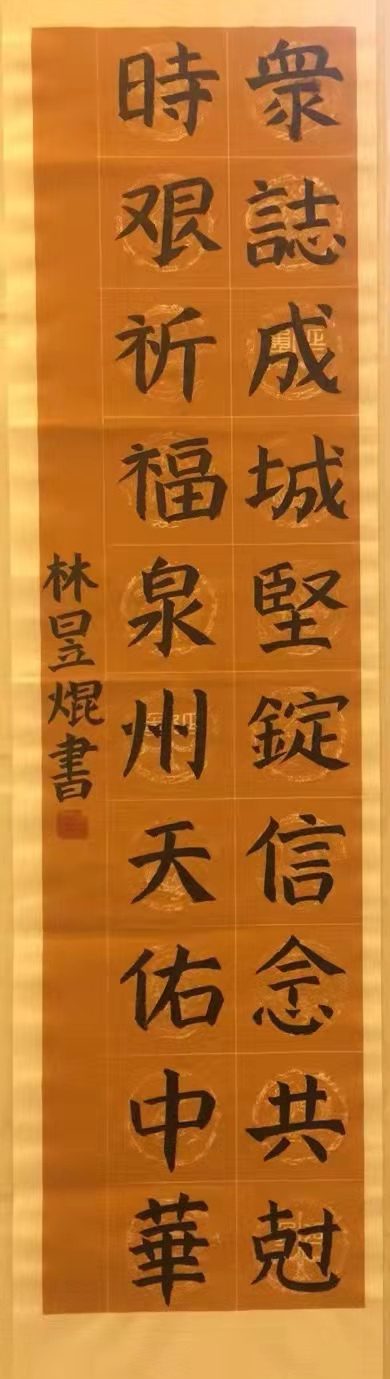 衆誌成城堅錠信念共尅
時艱祈福泉州天佑中華
林昱焜書